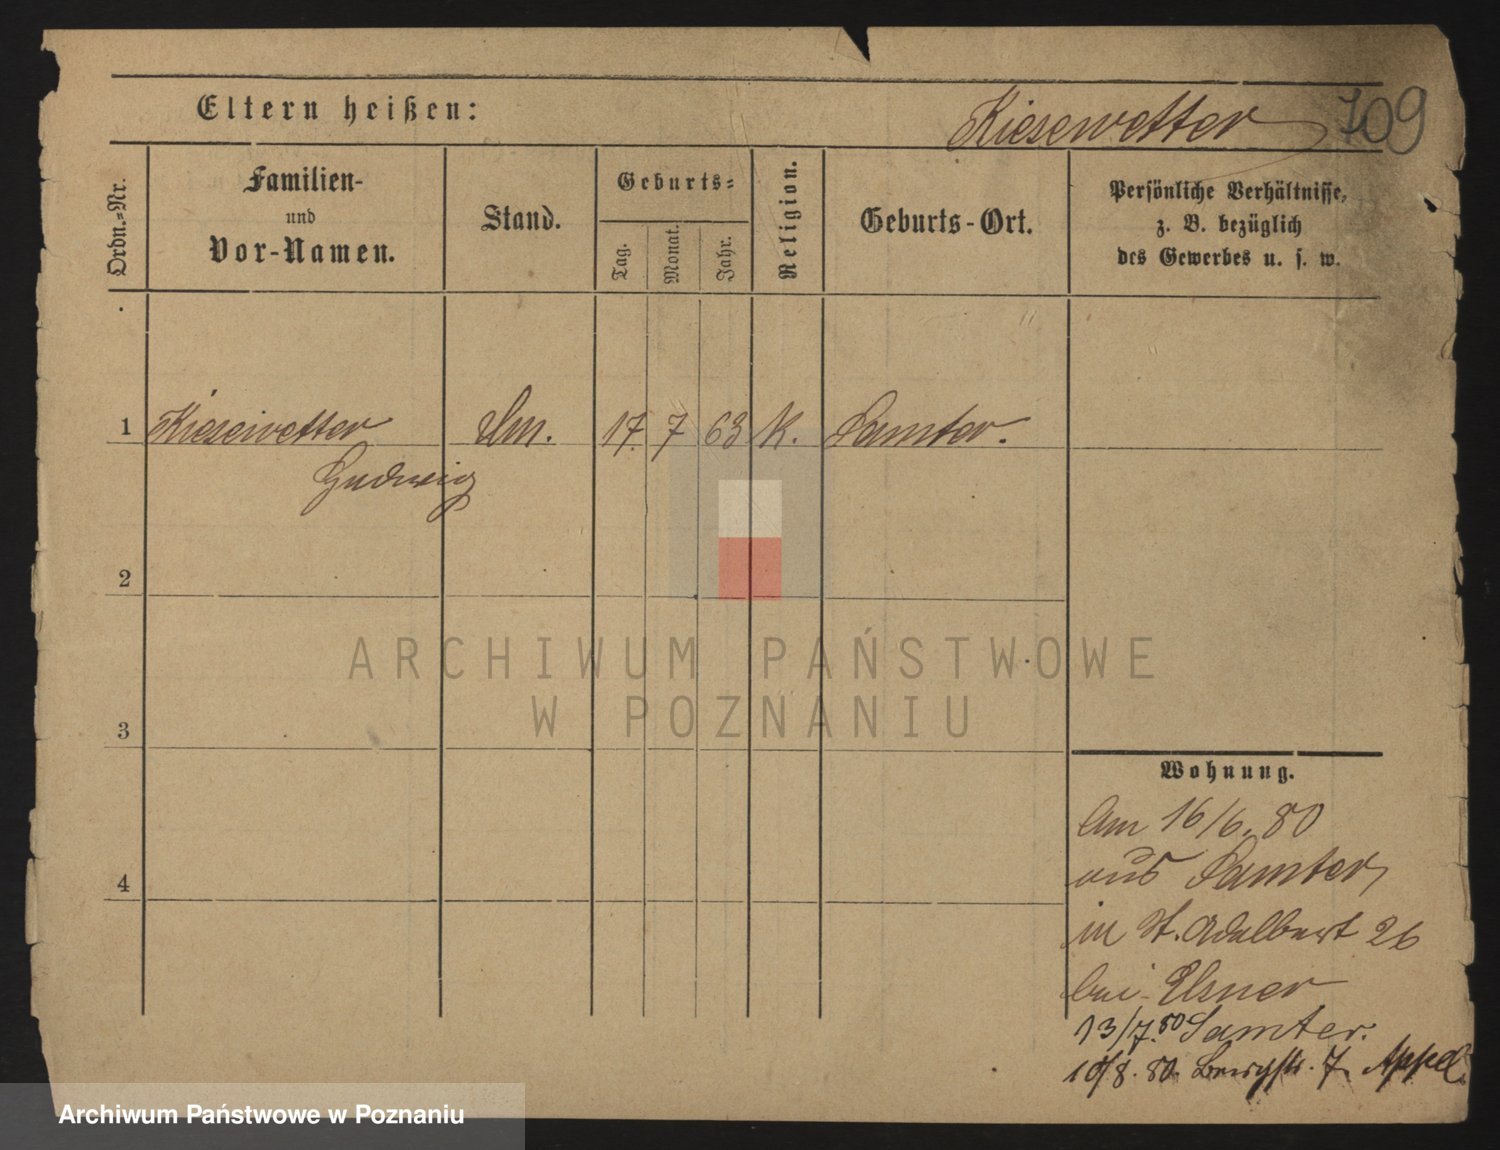 Eltern heißen:
Kiesewetter 709
Ordn.-Nr.
Familien-
und
Vor-Namen.
Stand.
Geburts-
Tag.
Monat.
Jahr.
Religion.
Geburts-Ort.
Persönliche Verhältnisse,
z. B. bezüglich
des Gewerbes u. s. w.
1 Kiesewetter 17. 7 63 K. Samter.
Ludwig
2
3
4
ARCHIWUM PAŃSTWOWE
W POZNANIU
Wohnung.
Am 16/6. 80
aus Samter,
in St. Adalbert 26
bei Elsner
13/7. 80 Samter.
10/8. 80. Bergstr. 7. Appel
Archiwum Państwowe w Poznaniu